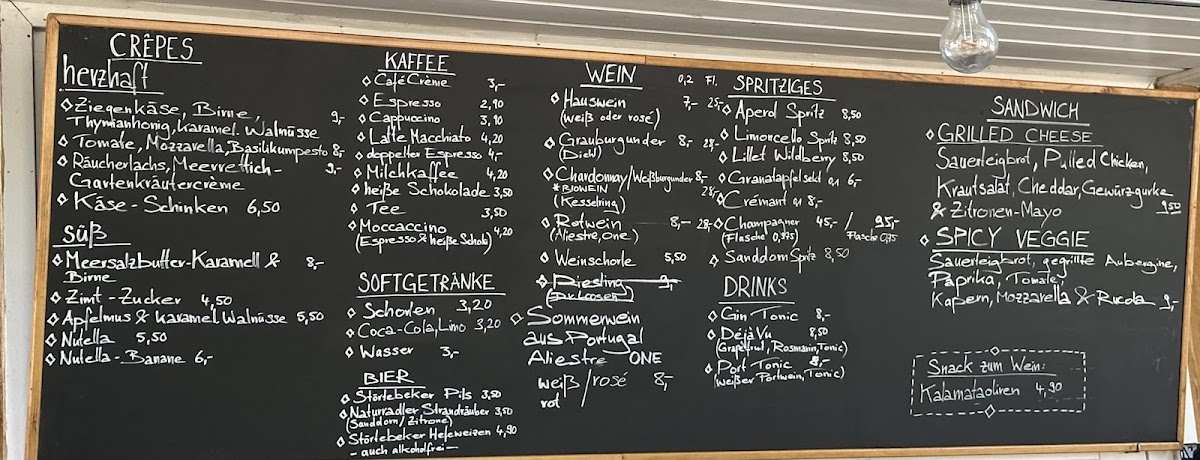 CRÊPES
herzhaft
◇ Ziegenkäse, Birne,
Thymianhonig, Karamel. Walnüsse 9,-
◇ Tomate, Mozzarella, Basilikumpesto 8,-
◇ Räucherlachs, Meerrettich- 9,-
Gartenkräutercrème
◇ Käse-Schinken 6,50
süß
◇ Meersalzbutter-Karamell & 8,-
Birne
◇ Zimt-Zucker 4,50
◇ Apfelmus & Karamel. Walnüsse 5,50
◇ Nutella 5,50
◇ Nutella-Banane 6,-
KAFFEE
◇ Café Crème 3,-
◇ Espresso 2,10
◇ Cappuccino 3,10
◇ Latte Macchiato 4,20
◇ doppelter Espresso 4,-
◇ Milchkaffee 4,20
◇ heiße Schokolade 3,50
◇ Tee 3,50
◇ Moccaccino 4,20
(Espresso & heiße Schoki)
SOFTGETRÄNKE
◇ Schorlen 3,20
◇ Coca-Cola, Limo 3,20
◇ Wasser 3,-
BIER
◇ Störtebeker Pils 3,50
◇ Naturradler Strandräuber 3,50
(Sanddorn/Zitrone)
◇ Störtebeker Hefeweizen 4,90
- auch alkoholfrei -
WEIN 0,2 Fl.
◇ Hauswein 7,- 25,-
(weiß oder rosé)
◇ Grauburgunder 8,- 28,-
(Diehl)
◇ Chardonnay/Weißburgunder 8,-
* BIOWEIN 28,-
(Kesselring)
◇ Rotwein 8,- 28,-
(Aliestre, One)
◇ Weinschorle 5,50
◇ Riesling 9,-
(Dr. Loosen)
◇ Sommerwein
aus Portugal
Aliestre ONE
weiß/rosé 8,-
rot
SPRITZIGES
◇ Aperol Spritz 8,50
◇ Limoncello Spritz 8,50
◇ Lillet Wildberry 8,50
◇ Granatapfelsekt 0,1 6,-
◇ Crémant 0,1 8,-
◇ Champagner 45,- / 95,-
(Flasche 0,375) Flasche 0,75
◇ Sanddorn Spritz 8,50
DRINKS
◇ Gin Tonic 8,-
◇ Déjà Vu 8,50
(Grapefruit, Rosmarin, Tonic)
◇ Port Tonic 8,-
(Weißer Portwein, Tonic)
SANDWICH
◇ GRILLED CHEESE
Sauerteigbrot, Pulled Chicken,
Krautsalat, Cheddar, Gewürzgurke
& Zitronen-Mayo 9,50
◇ SPICY VEGGIE
Sauerteigbrot, gegrillte Aubergine,
Paprika, Tomate,
Kapern, Mozzarella & Rucola 9,-
Snack zum Wein:
Kalamataoliven 4,90